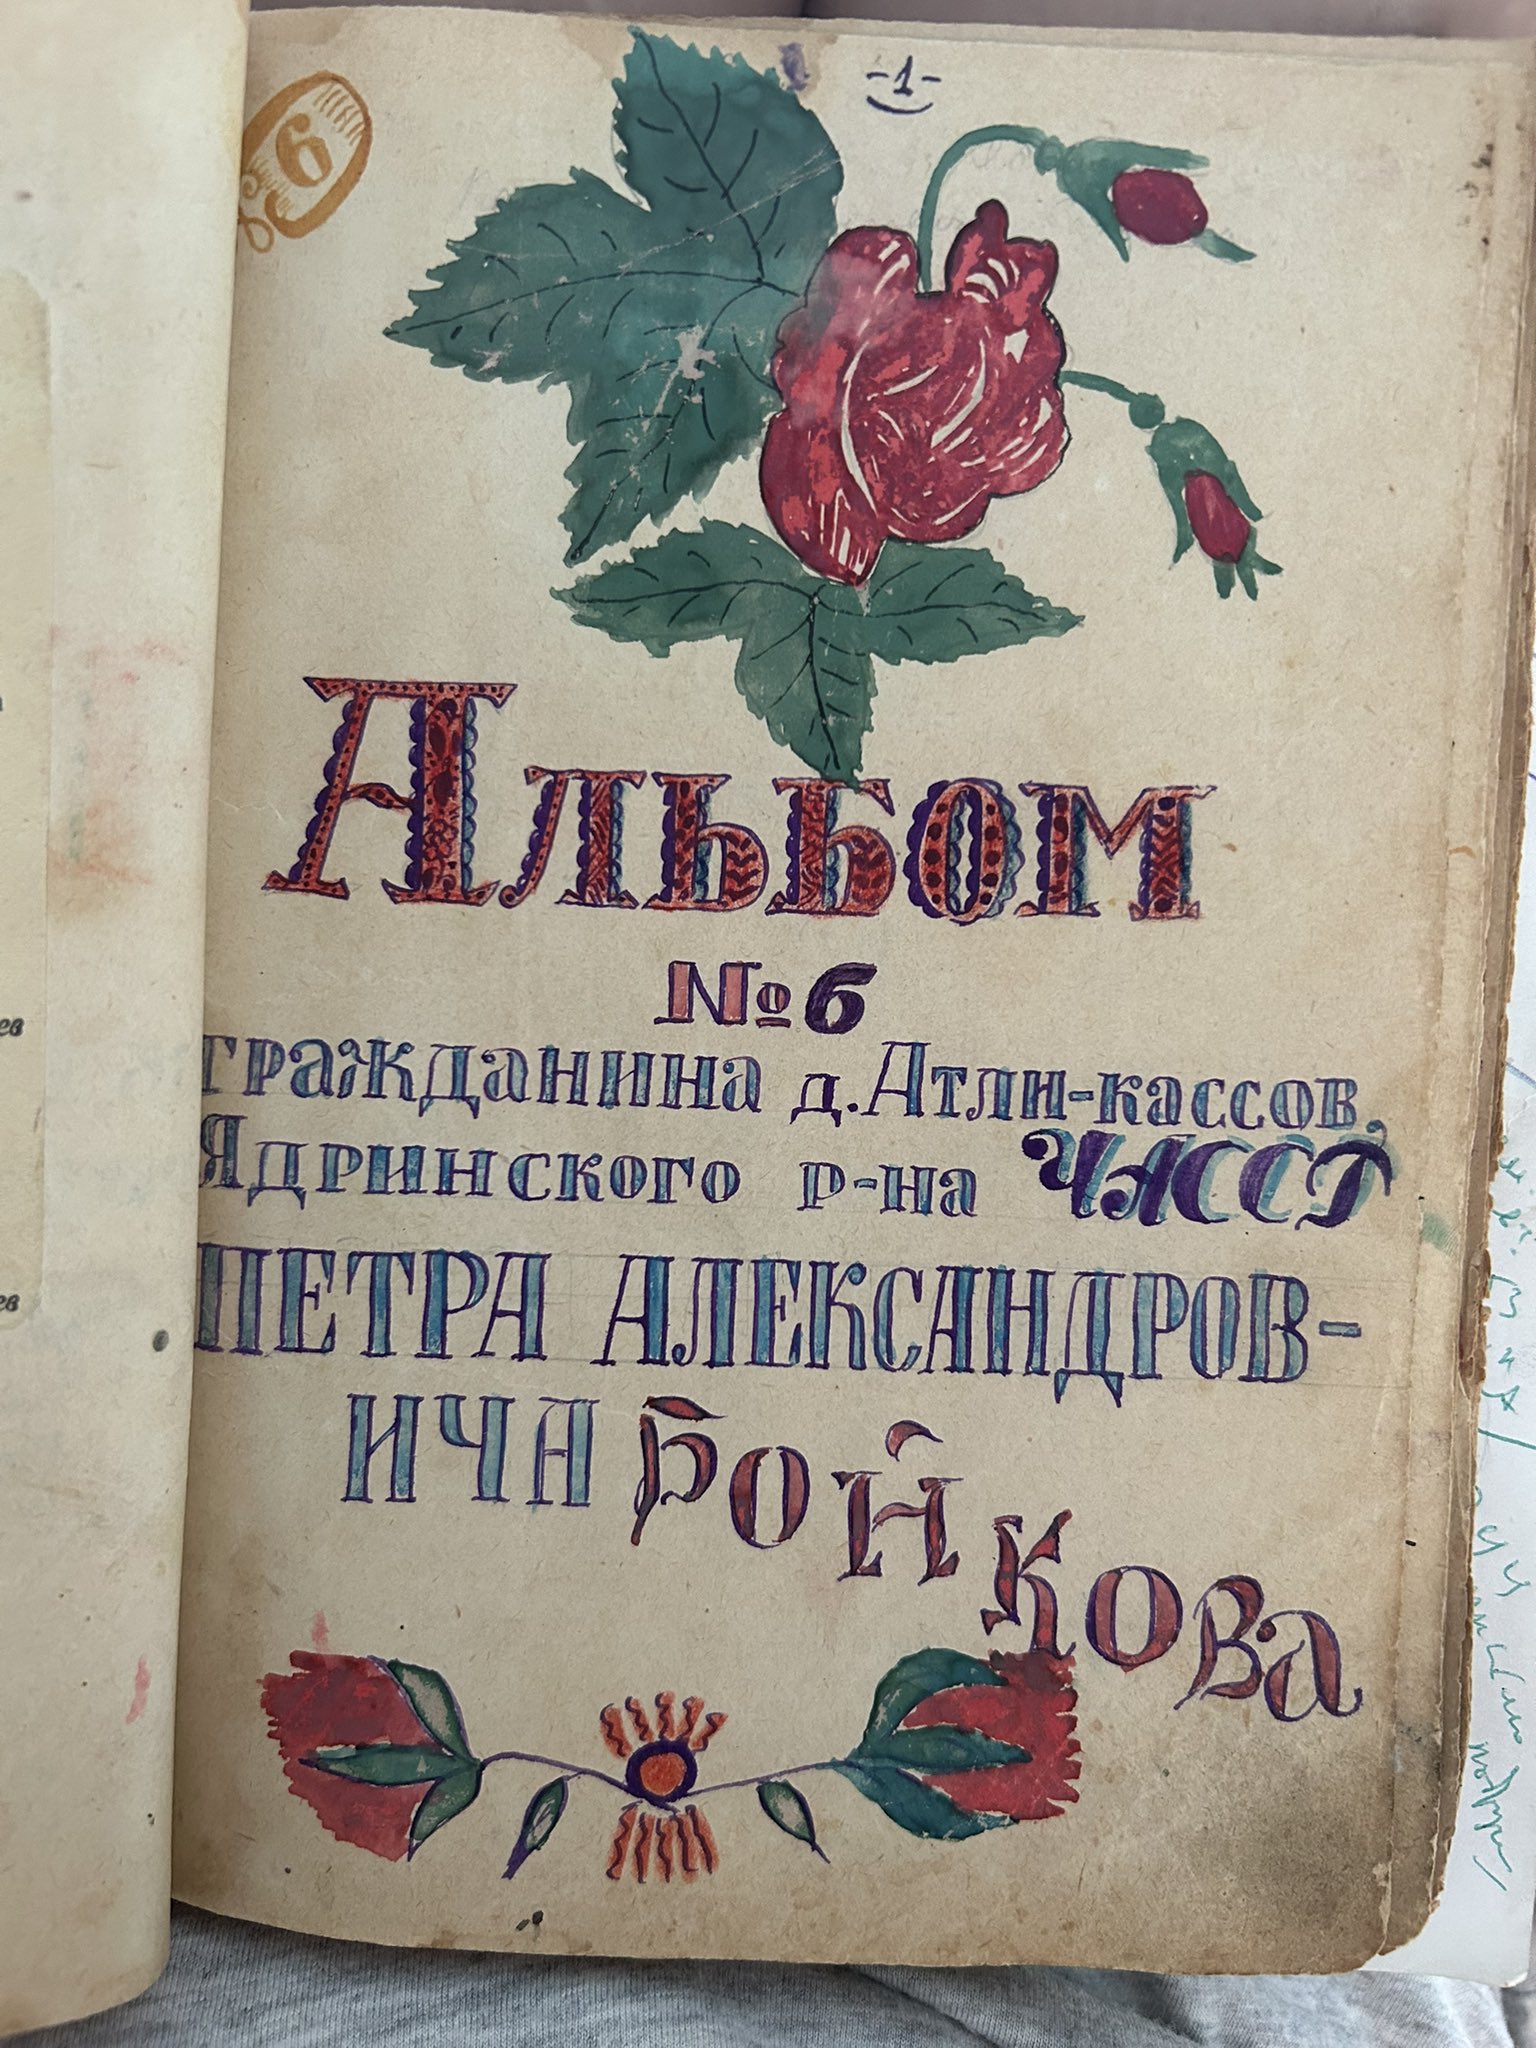 6
-1-
Альбом
№6
гражданина д. Атли-кассов,
Ядринского р-на ЧАССР
ПЕТРА АЛЕКСАНДРОВ-
ИЧА Бойкова
ев
ев